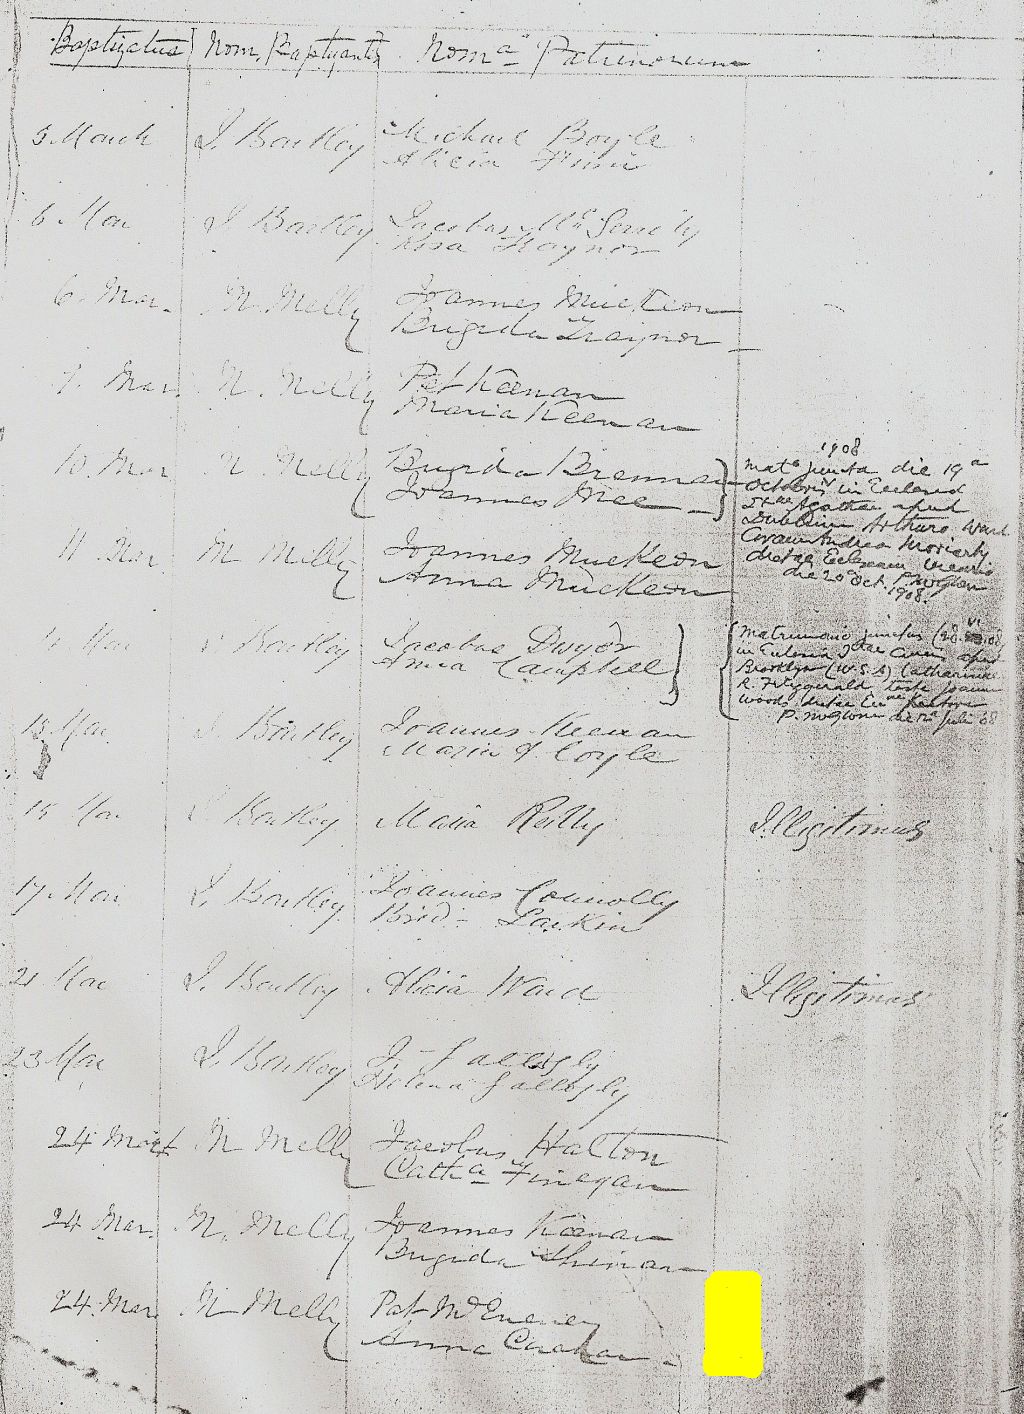 Baptizatus Nom. Baptizantis Nom^a Patrinorum
5 March J. Bartley Michael Boyle
Alicia
6 Mar J. Bartley Jacobus
Rosa Traynor
6. Mar. N. Melly Joannes McKeon
Brigida Traynor
7. Mar. N. Melly Pat Keenan
Maria Keenan
10. Mar N. Melly Brigida Brennan
Joannes
1908
Mat^a juncta die 19^a
Octobris in Ecclesia
Stae Agathae apud
Dublin Arturo Ward
Coram Andrea Moriarty
dictae Ecclesiae Vicario
die 20^a Oct.
1908.
11 Mar N Melly Joannes McKeon
Anna McKeon
Mar J. Bartley Jacobus Dwyer
Anna Campbell
Matrimonio junctus
in Ecclesia apud
Brooklyn (U.S.A) Catharinae
R. Fitzgerald teste Joanne
Woods
P. McGlone Julii 08
13 Mar. J. Bartley Joannes Keenan
Maria J. Coyle
15 Mar J. Bartley Maria Reilly Illigitimus
17 Mar J. Bartley Joannes Connolly
Brid- Larkin
21 Mar J. Bartley Alicia Ward Illigitimus
23 Mar J. Bartley J-
Helena
24 March N Melly Jacobus Halton
Cath^a Finegan
24 Mar. N. Melly Joannes Keenan
Brigida
24. Mar N Melly Pat McEneney
Anna